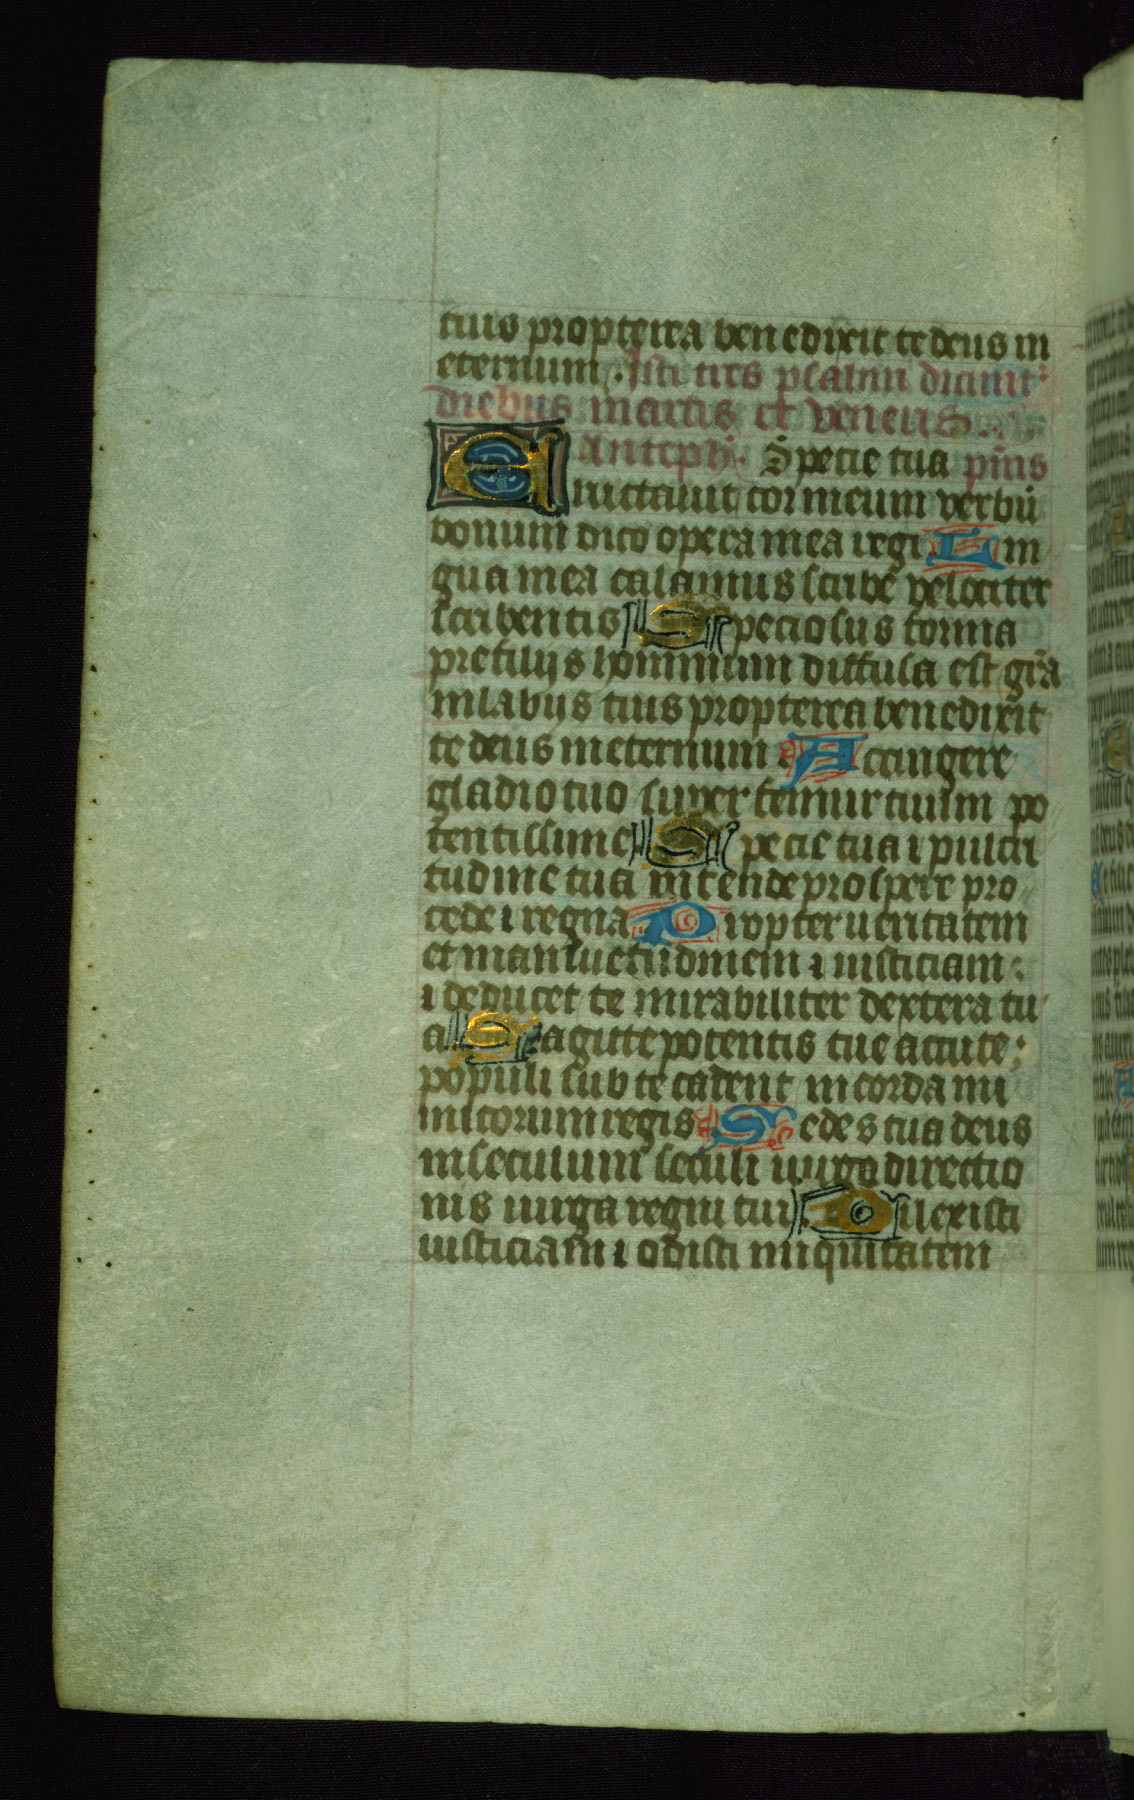 tuis propterea benedixit te deus in
eternum. Isti tres psalmi dicunt᷑
diebus martis et veneris.
Antiph. Specie tua pm̄s
Eructauit cor meum verbū
bonum dico opera mea regi Lin
gua mea calamus scribe velociter
scribentis Speciosus forma
prefilijs hominum diffusa est gr̄a
inlabijs tuis propterea benedixit
te deus ineternum Accingere
gladio tuo super femur tuum po
tentissime Specie tua ⁊ pulcri
tudine tua intende prospere pro
cede ⁊ regna Propter ueritatem
et mansuetudinem ⁊ iusticiam
⁊ deducet te mirabiliter dextera tu
a Sagitte potentis tue acute:
populi sub te cadent incorda ini
micorum regis Sedes tua deus
inseculum seculi uirga directio
nis uirga regni tui Dilexisti
iusticiam ⁊ odisti iniquitatem